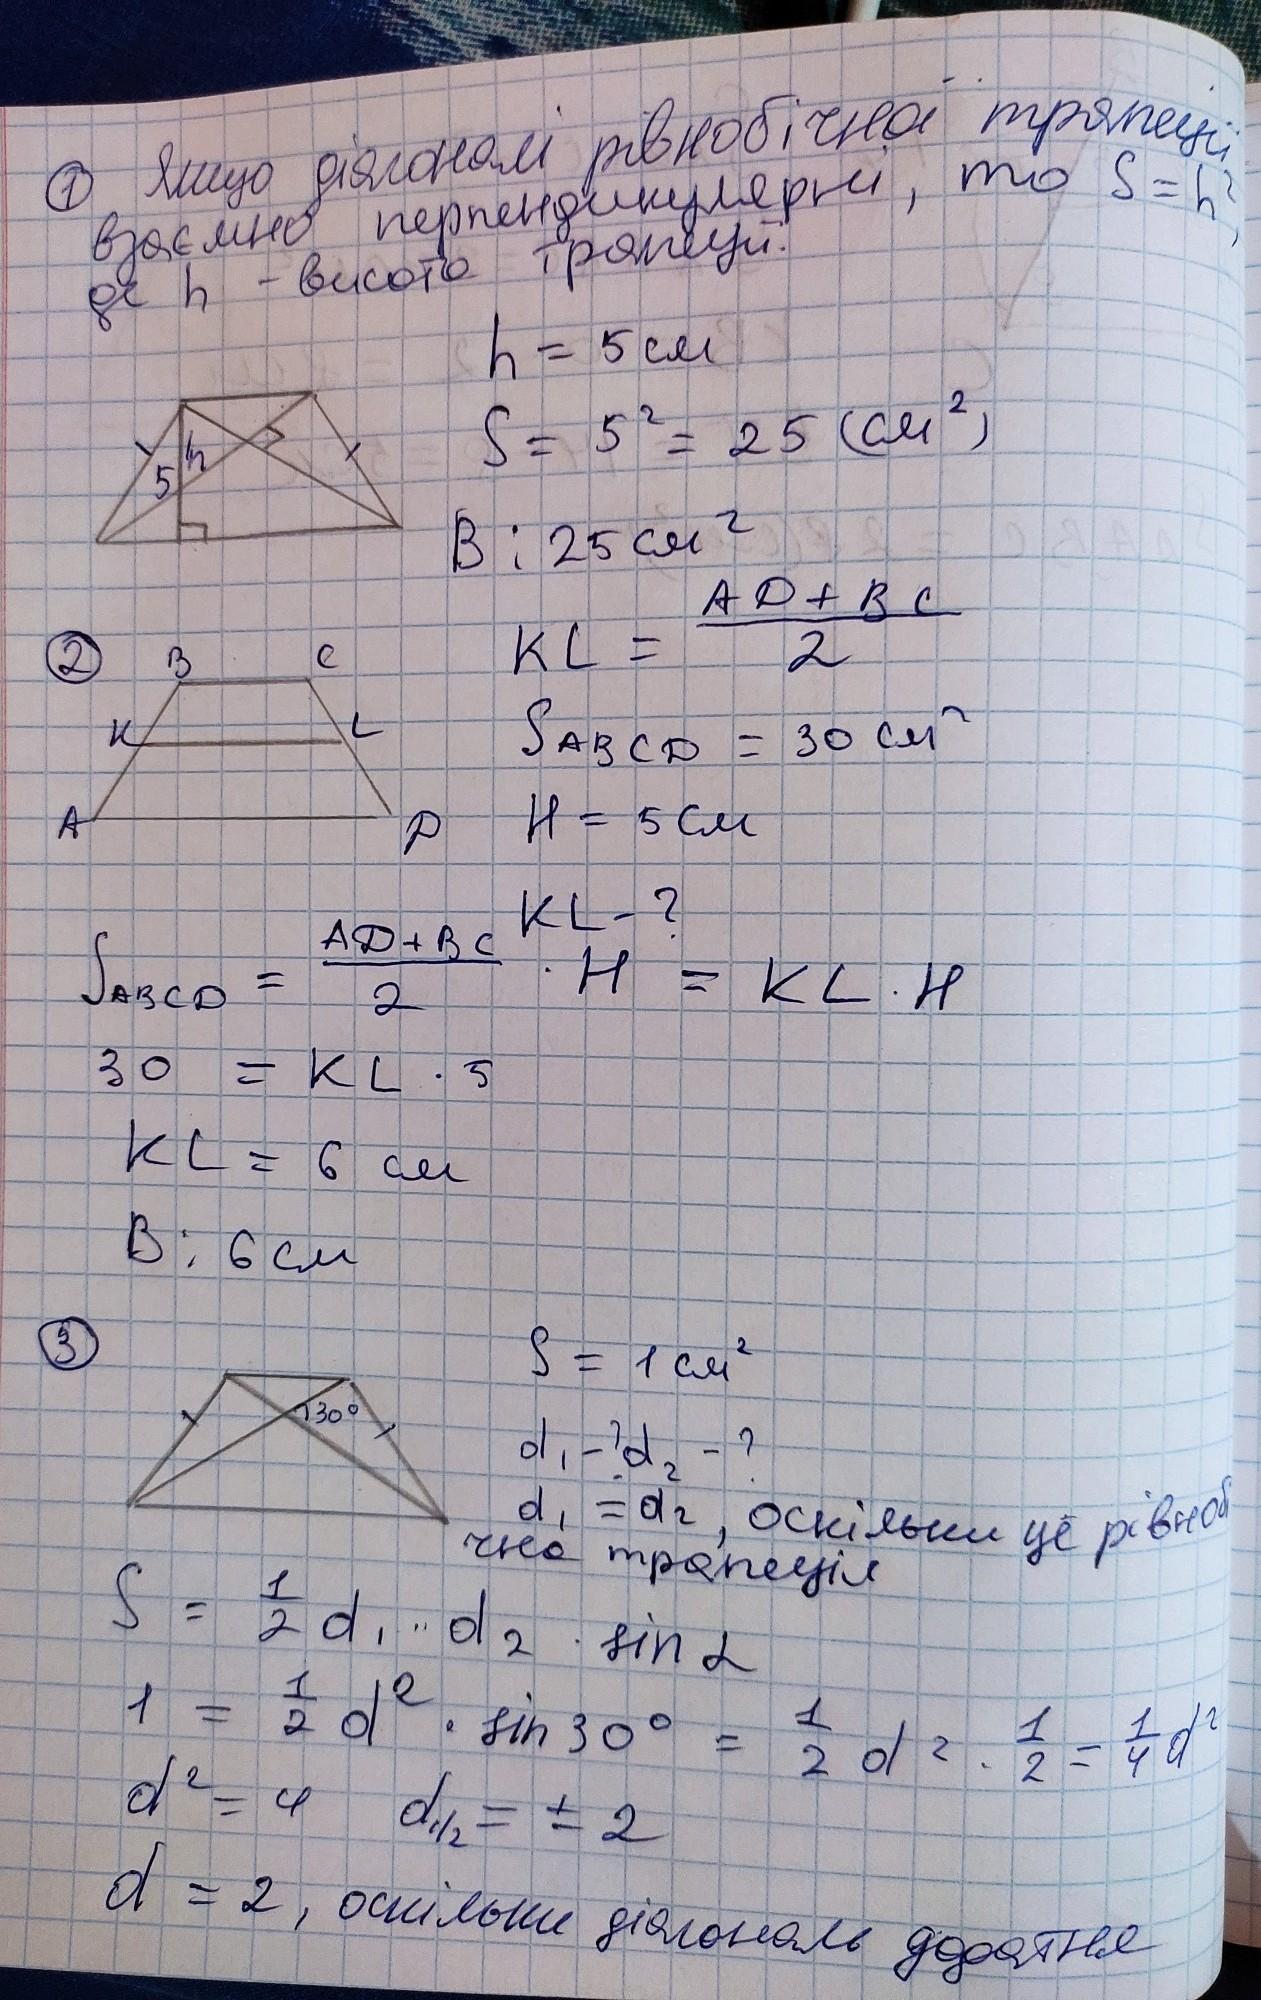 ① Якщо діагоналі рівнобічної трапеції
взаємно перпендикулярні, то S = h²,
де h - висота трапеції.
h = 5 см
5 h
S = 5² = 25 (см²)
В: 25 см²
② B C
KL = (AD + BC)/2
K L
S ABCD = 30 см²
A D
H = 5 см
KL - ?
S ABCD = (AD + BC)/2 · H = KL · H
30 = KL · 5
KL = 6 см
В: 6 см
③
S = 1 см²
30°
d₁ - ? d₂ - ?
d₁ = d₂, оскільки це рівнобі
чна трапеція
S = 1/2 d₁ · d₂ · sin α
1 = 1/2 d² · sin 30° = 1/2 d² · 1/2 = 1/4 d²
d² = 4 d₁/₂ = ± 2
d = 2, оскільки діагональ додатня